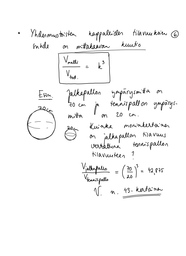 • Yhdenmuotoisten kappaleiden tilavuuksien ⑥
suhde on mittakaavan kuutio
V_malli / V_luon. = k³
Esim. Jalkapallon ympärysmitta on
70 cm ja tennispallon ympärys-
mitta on 20 cm.
Kuinka moninkertainen
on jalkapallon tilavuus
verrattuna tennispallon
tilavuuteen?
70cm
20cm
V_jalkapallo / V_tennispallo = (70/20)³ = 42,875
V: n. 43-kertainen